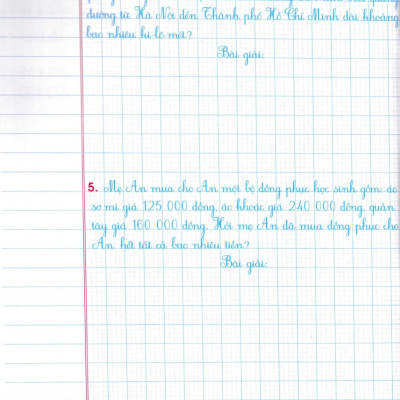 đường từ Hà Nội đến Thành phố Hồ Chí Minh dài khoảng
bao nhiêu ki-lô-mét?
Bài giải:
5. Mẹ An mua cho An một bộ đồng phục học sinh gồm: áo
sơ mi giá 125 000 đồng, áo khoác giá 240 000 đồng, quần
tây giá 160 000 đồng. Hỏi mẹ An đã mua đồng phục cho
An hết tất cả bao nhiêu tiền?
Bài giải: